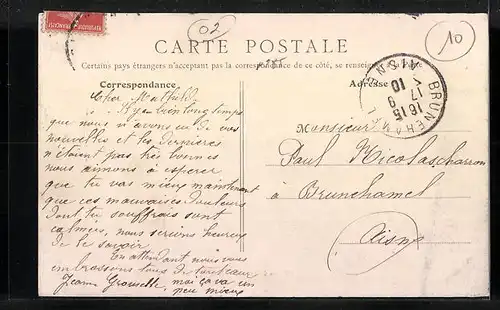 02
10
CARTE POSTALE
Certains pays étrangers n'acceptant pas la correspondance de ce côté, se renseigner
Correspondance
Adresse
BRUNEHAMEL
AISNE
16 15
17 9
10
Cher
Il y a bien longtemps
que nous n'avons eu de vos
nouvelles et les dernières
n'étaient pas très bonnes
nous aimons à espérer
que tu vas mieux maintenant
que ces mauvaises douleurs
dont tu souffrais sont
calmées, nous serions heureux
de le savoir
En attendant nous vous
embrassons tous de tout cœur
Jeanne moi ça va un
peu mieux
Monsieur
Paul Nicolas charron
à Brunehamel
Aisne